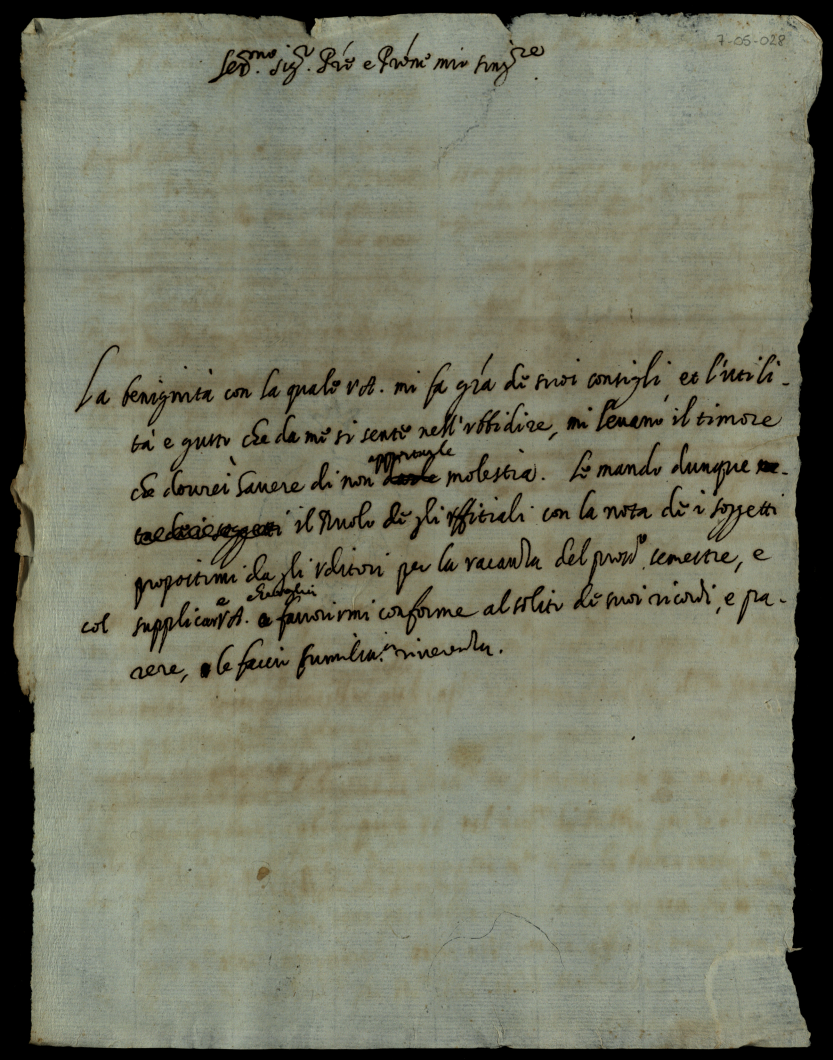 7-05-028
Ser.mo Sig.r P̃re e P̃rone mio sing.re
La benignità con la quale V.A. mi fa gr̃a de suoi consigli, et l'utili-
tà e gusto che da me si sente nell'ubbidire, mi levano il timore
apportarle
che dovrei havere di non molestia. Le mando dunque
il Ruolo de gli Uffitiali con la nota de i soggetti
propostimi da gli Uditori per la vacanza del pross.o semestre, e
col supplicar V.A. a favorirmi conforme al solito de suoi ricordi, e pa-
rere, le faccio humiliss.a riverenza.